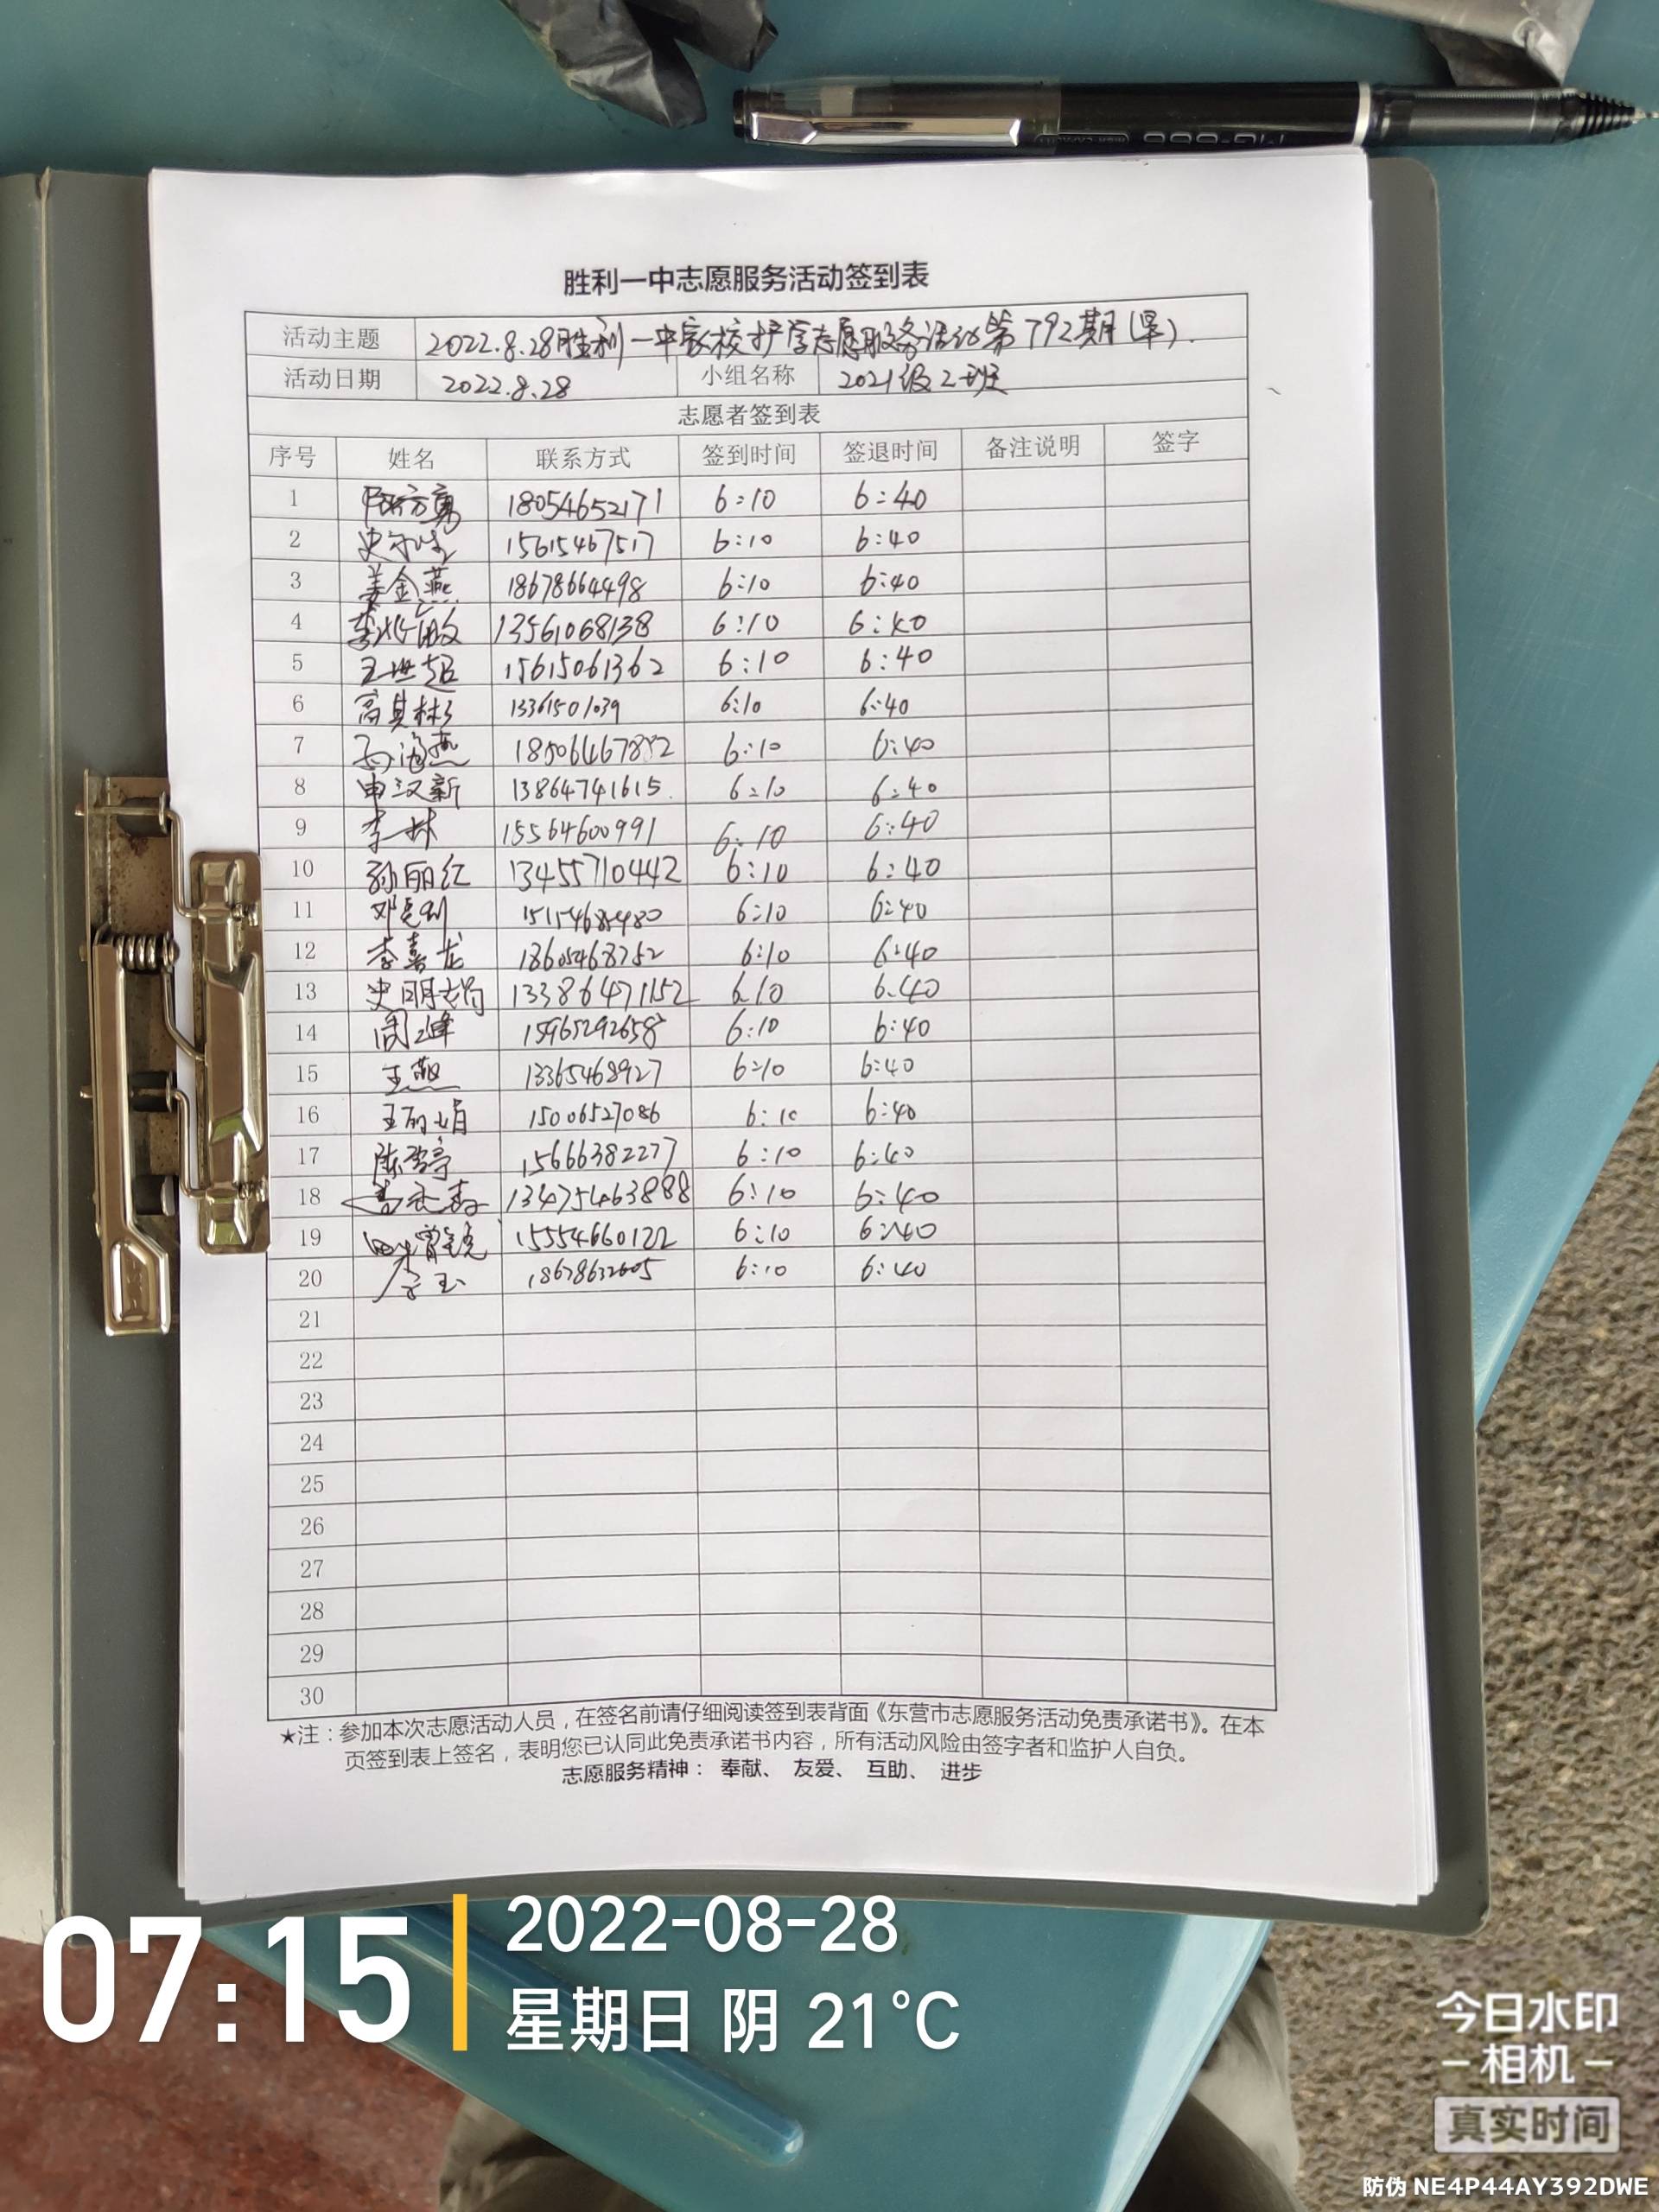 MG-666
胜利一中志愿服务活动签到表
活动主题 2022.8.28胜利一中家校护学志愿服务活动第792期(早).
活动日期 2022.8.28 小组名称 2021级2班
志愿者签到表
序号 姓名 联系方式 签到时间 签退时间 备注说明 签字
1 18054652171 6:10 6:40
2 15615467517 6:10 6:40
3 姜金燕 18678664498 6:10 6:40
4 13561068138 6:10 6:40
5 王世超 15615061362 6:10 6:40
6 高其彬 13361501039 6:10 6:40
7 6:10 6:40
8 由汉新 13864741615 6:10 6:40
9 李林 15564600991 6:10 6:40
10 孙丽红 13455710442 6:10 6:40
11 6:10 6:40
12 李嘉龙 6:10 6:40
13 13386471152 6.10 6.40
14 15965292658 6:10 6:40
15 王燕 13365468927 6:10 6:40
16 王丽娟 15006527086 6:10 6:40
17 15666382277 6:10 6:40
18 134754463888 6:10 6:40
19 15554660122 6:10 6:40
20 6:10 6:40
21
22
23
24
25
26
27
28
29
30
★注:参加本次志愿活动人员,在签名前请仔细阅读签到表背面《东营市志愿服务活动免责承诺书》。在本
页签到表上签名,表明您已认同此免责承诺书内容,所有活动风险由签字者和监护人自负。
志愿服务精神: 奉献、 友爱、 互助、 进步
07:15
2022-08-28
星期日 阴 21°C
今日水印
相机
真实时间
防伪 NE4P44AY392DWE